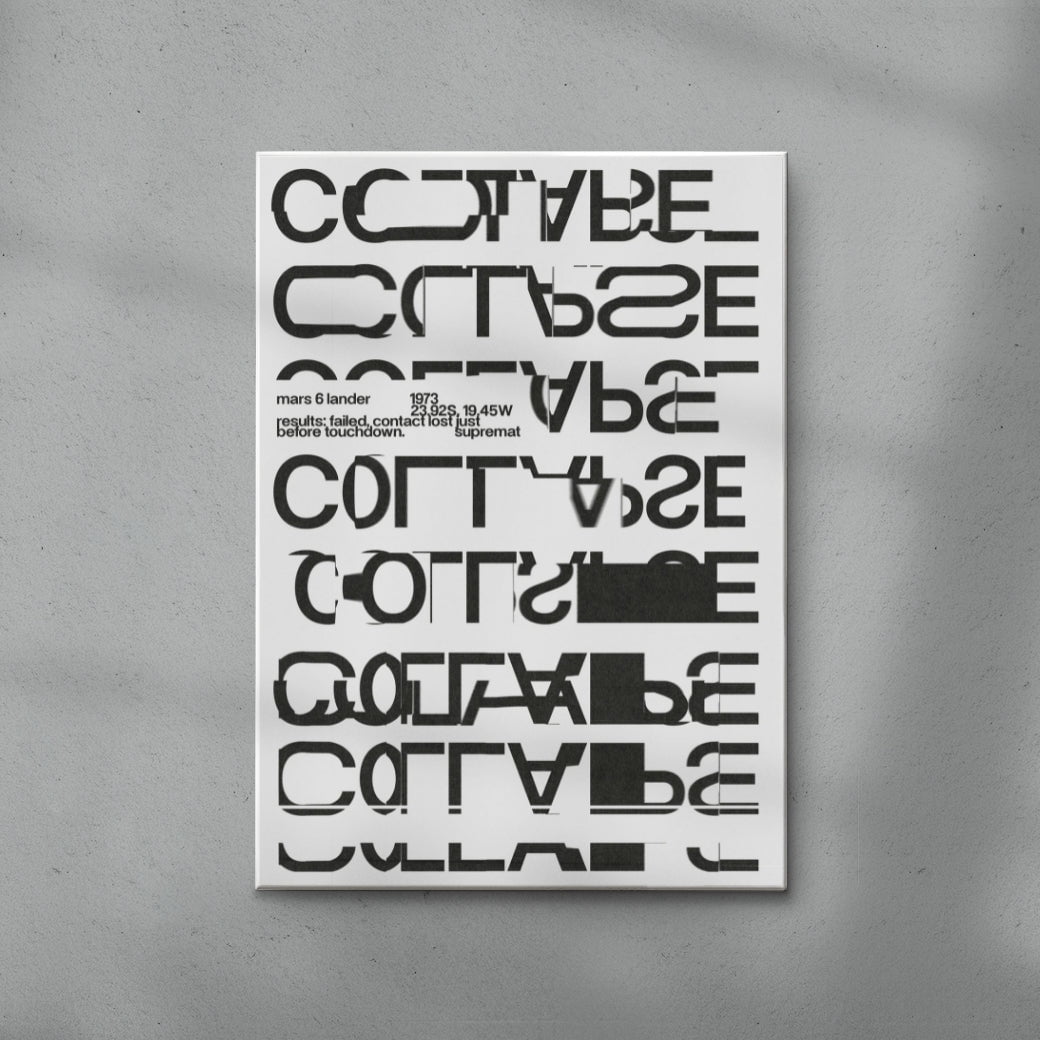 COLLAPSE
COLLAPSE
COLLAPSE
mars 6 lander 1973
23,92S, 19,45W
results: failed, contact lost just
before touchdown. supremat
COLLAPSE
COLLAPSE
COLLAPSE
COLLAPSE
COLLAPSE